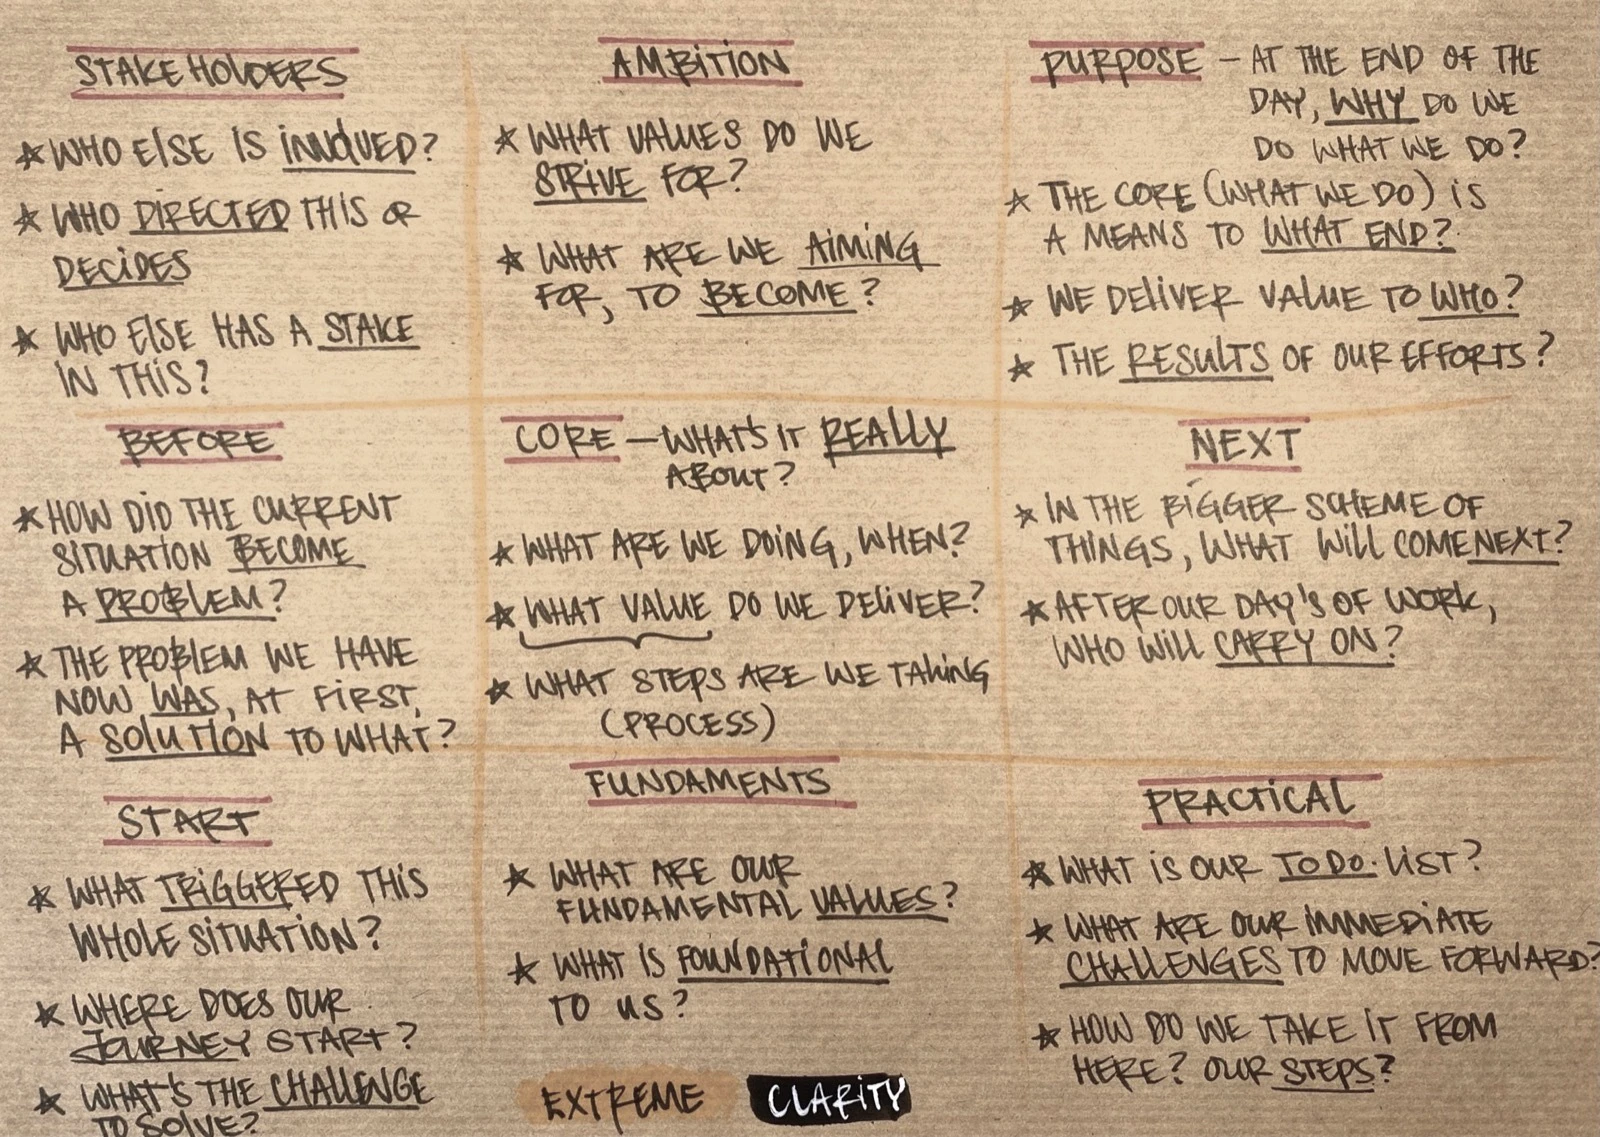 STAKEHOLDERS
★ WHO ELSE IS INVOLVED?
★ WHO DIRECTED THIS OR
DECIDES
★ WHO ELSE HAS A STAKE
IN THIS?
AMBITION
★ WHAT VALUES DO WE
STRIVE FOR?
★ WHAT ARE WE AIMING
FOR, TO BECOME?
PURPOSE – AT THE END OF THE
DAY, WHY DO WE
DO WHAT WE DO?
★ THE CORE (WHAT WE DO) IS
A MEANS TO WHAT END?
★ WE DELIVER VALUE TO WHO?
★ THE RESULTS OF OUR EFFORTS?
BEFORE
★ HOW DID THE CURRENT
SITUATION BECOME
A PROBLEM?
★ THE PROBLEM WE HAVE
NOW WAS, AT FIRST,
A SOLUTION TO WHAT?
CORE – WHAT'S IT REALLY
ABOUT?
★ WHAT ARE WE DOING, WHEN?
★ WHAT VALUE DO WE DELIVER?
★ WHAT STEPS ARE WE TAKING
(PROCESS)
NEXT
★ IN THE BIGGER SCHEME OF
THINGS, WHAT WILL COME NEXT?
★ AFTER OUR DAY'S OF WORK,
WHO WILL CARRY ON?
START
★ WHAT TRIGGERED THIS
WHOLE SITUATION?
★ WHERE DOES OUR
JOURNEY START?
★ WHAT'S THE CHALLENGE
TO SOLVE?
FUNDAMENTS
★ WHAT ARE OUR
FUNDAMENTAL VALUES?
★ WHAT IS FOUNDATIONAL
TO US?
PRACTICAL
★ WHAT IS OUR TO DO. LIST?
★ WHAT ARE OUR IMMEDIATE
CHALLENGES TO MOVE FORWARD?
★ HOW DO WE TAKE IT FROM
HERE? OUR STEPS?
EXTREME CLARITY